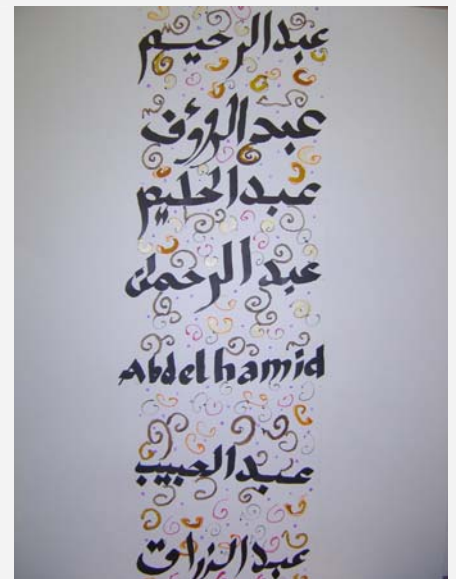 عبدالرحيم
عبدالرؤف
عبدالحليم
عبدالرحمان
Abdelhamid
عبدالحبيب
عبدالزراق